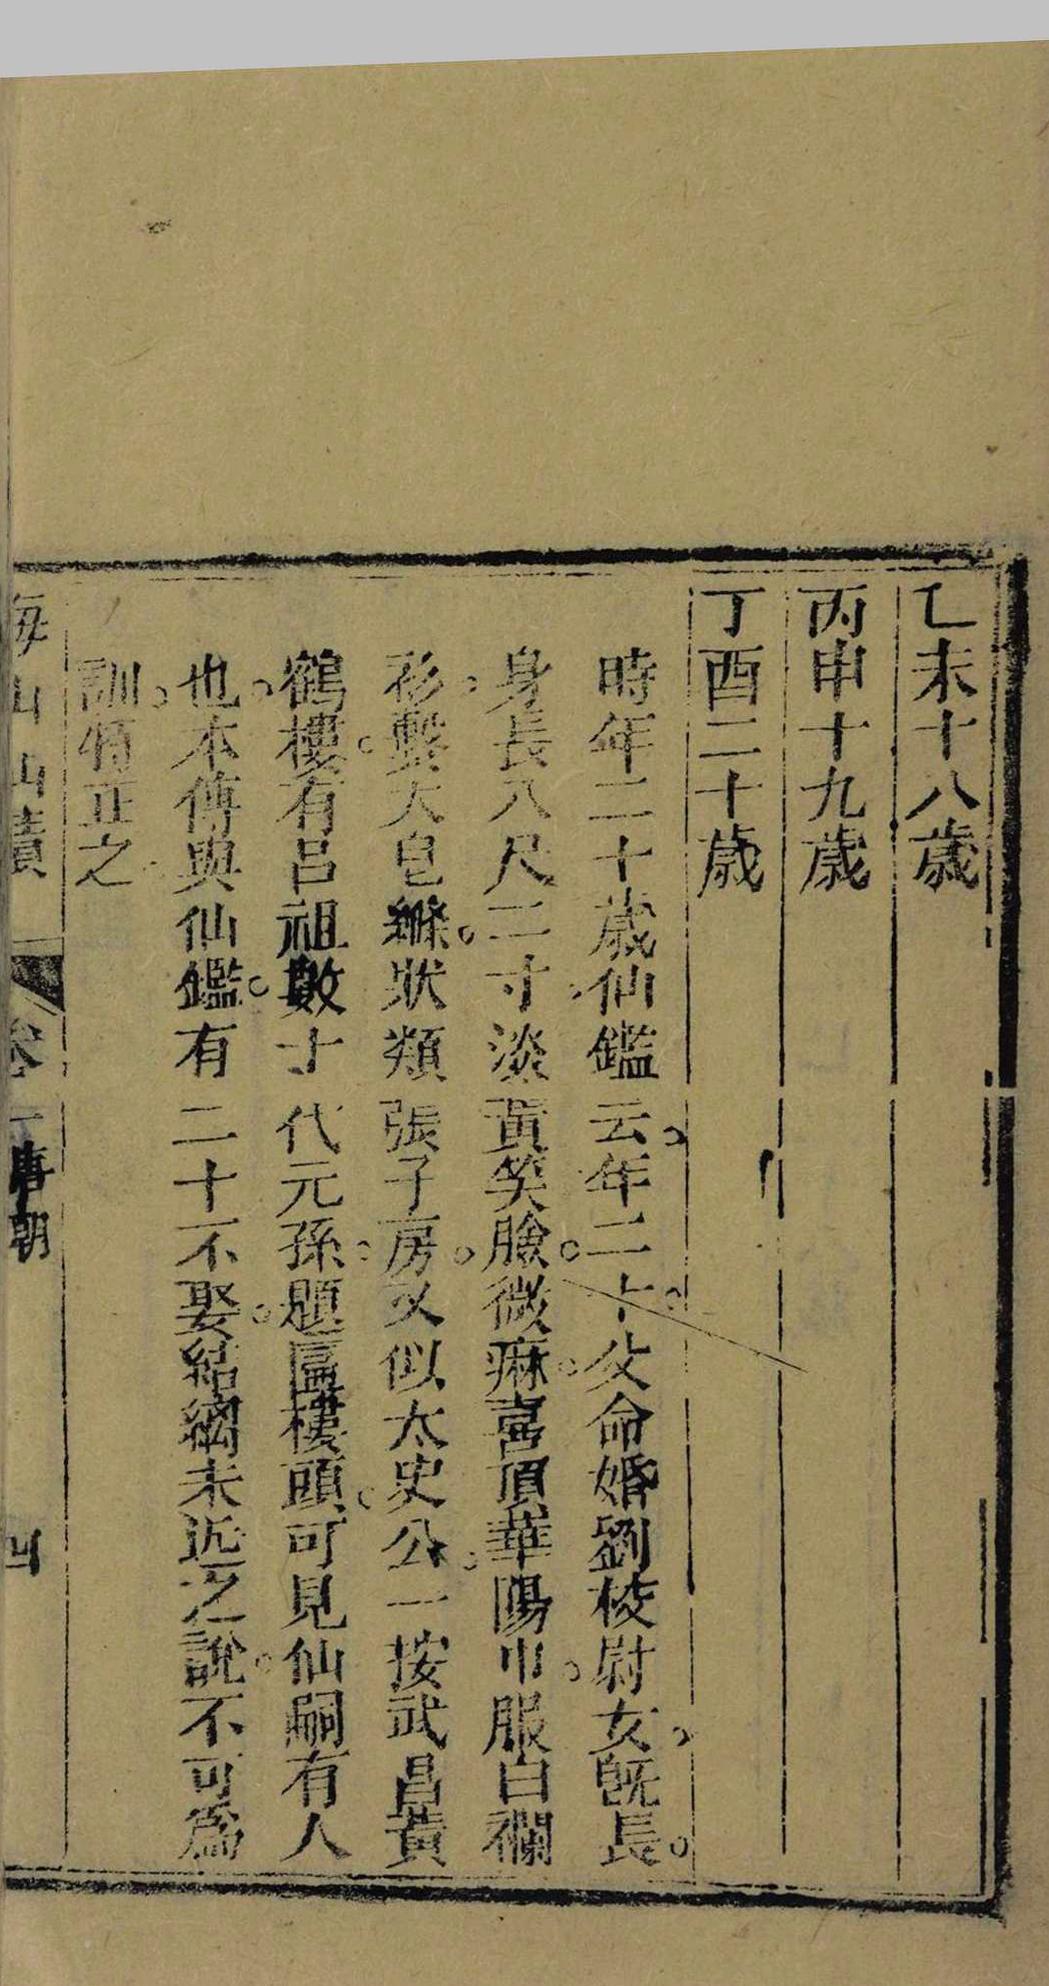 乙未十八歲
丙申十九歲
丁酉二十歲
時年二十歲仙鑑云年二十父命婚劉校尉女既長
身長八尺二寸淡黃笑臉微麻喜頂華陽巾服白襴
衫繫大皂縧狀類張子房又似太史公一按武昌黃
鶴樓有呂祖數十代元孫題匾樓頭可見仙嗣有人
也本傳與仙鑑有二十不娶結縭未近之說不可爲
訓特正之
唐朝
四